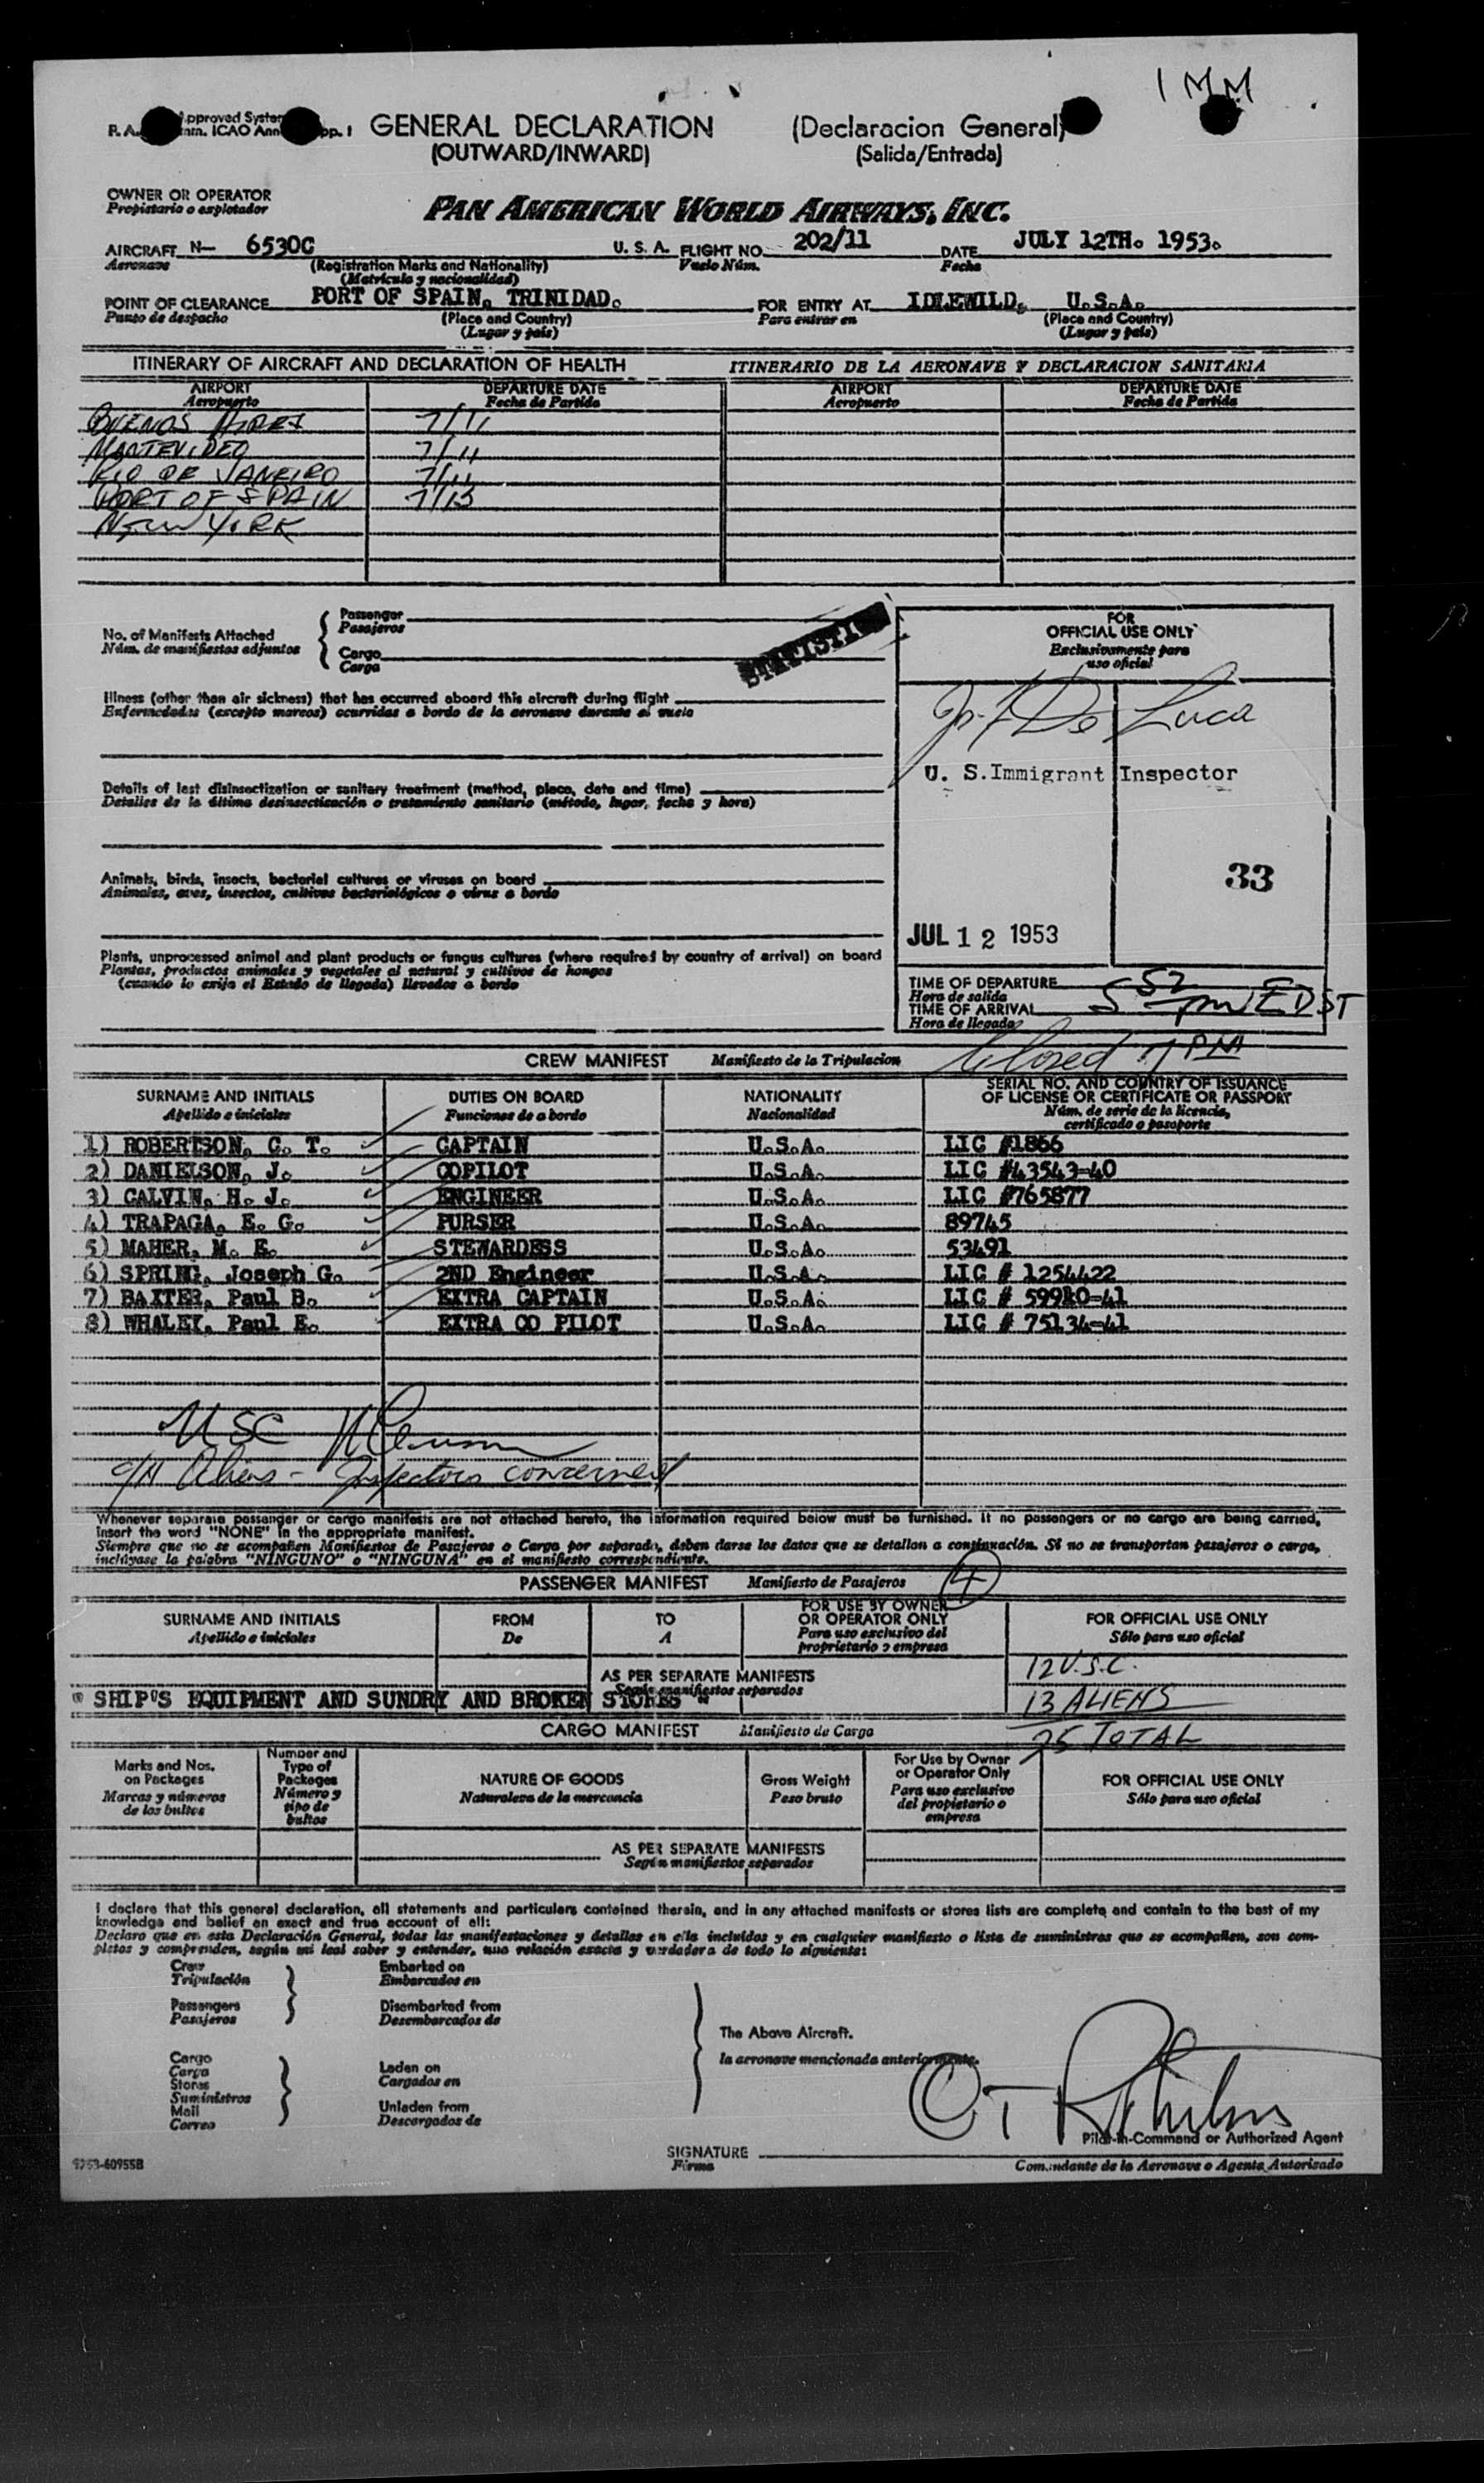 1 MM
P. A. Approved System
mm. ICAO Ann pp. 1
GENERAL DECLARATION (Declaracion General)
(OUTWARD/INWARD) (Salida/Entrada)
OWNER OR OPERATOR
Propietario o explotador
PAN AMERICAN WORLD AIRWAYS, INC.
AIRCRAFT N— 6530C U. S. A. FLIGHT NO. 202/11 DATE JULY 12TH. 1953.
Aeronave (Registration Marks and Nationality) Vuelo Núm. Fecha
(Matrícula y nacionalidad)
POINT OF CLEARANCE PORT OF SPAIN, TRINIDAD. FOR ENTRY AT IDLEWILD, U.S.A.
Punto de despacho (Place and Country) Para entrar en (Place and Country)
(Lugar y país) (Lugar y país)
ITINERARY OF AIRCRAFT AND DECLARATION OF HEALTH ITINERARIO DE LA AERONAVE Y DECLARACION SANITARIA
AIRPORT DEPARTURE DATE AIRPORT DEPARTURE DATE
Aeropuerto Fecha de Partida Aeropuerto Fecha de Partida
BUENOS AIRES 7/11
MONTEVIDEO 7/11
RIO DE JANEIRO 7/11
PORT OF SPAIN 7/13
NEW YORK
No. of Manifests Attached
Núm. de manifiestos adjuntos
Passenger
Pasajeros
Cargo
Carga
STATISTICS
FOR
OFFICIAL USE ONLY
Exclusivamente para
uso oficial
Illness (other than air sickness) that has occurred aboard this aircraft during flight
Enfermedades (excepto mareos) ocurridas a bordo de la aeronave durante el vuelo
De Luca
U. S. Immigrant Inspector
Details of last disinsectization or sanitary treatment (method, place, date and time)
Detalles de la última desinsectización o tratamiento sanitario (método, lugar, fecha y hora)
Animals, birds, insects, bacterial cultures or viruses on board
Animales, aves, insectos, cultivos bacteriológicos o virus a bordo
33
JUL 12 1953
Plants, unprocessed animal and plant products or fungus cultures (where required by country of arrival) on board
Plantas, productos animales y vegetales al natural y cultivos de hongos
(cuando lo exija el Estado de llegada) llevados a bordo
TIME OF DEPARTURE
Hora de salida
TIME OF ARRIVAL 5 52 pm EDST
Hora de llegada
Closed 11 PM
CREW MANIFEST Manifiesto de la Tripulacion
SURNAME AND INITIALS DUTIES ON BOARD NATIONALITY SERIAL NO. AND COUNTRY OF ISSUANCE
OF LICENSE OR CERTIFICATE OR PASSPORT
Apellido e iniciales Funciones de a bordo Nacionalidad Núm. de serie de la licencia,
certificado o pasaporte
1) ROBERTSON, C. T. CAPTAIN U.S.A. LIC #1866
2) DANIELSON, J. COPILOT U.S.A. LIC #43543-40
3) CALVIN, H. J. ENGINEER U.S.A. LIC #765877
4) TRAPAGA, E. G. PURSER U.S.A. 89745
5) MAHER, M. E. STEWARDESS U.S.A. 53491
6) SPRING, Joseph G. 2ND Engineer U.S.A. LIC # 1254422
7) BAXTER, Paul B. EXTRA CAPTAIN U.S.A. LIC # 599k0-41
8) WHALEY, Paul E. EXTRA CO PILOT U.S.A. LIC # 75134-41
USC
Aliens - Inspectors concerned
Whenever separate passenger or cargo manifests are not attached hereto, the information required below must be furnished. If no passengers or no cargo are being carried,
insert the word "NONE" in the appropriate manifest.
Siempre que no se acompañen Manifiestos de Pasajeros o Carga por separado, deben darse los datos que se detallan a continuación. Si no se transportan pasajeros o carga,
inclúyase la palabra "NINGUNO" o "NINGUNA" en el manifiesto correspondiente.
PASSENGER MANIFEST Manifiesto de Pasajeros 4
SURNAME AND INITIALS FROM TO FOR USE BY OWNER
OR OPERATOR ONLY FOR OFFICIAL USE ONLY
Apellido e iniciales De A Para uso exclusivo del
propietario o empresa Sólo para uso oficial
12 U.S.C.
AS PER SEPARATE MANIFESTS
Según manifiestos separados
" SHIP'S EQUIPMENT AND SUNDRY AND BROKEN STORES "
13 ALIENS
25 TOTAL
CARGO MANIFEST Manifiesto de Carga
Marks and Nos.
on Packages
Marcas y números
de los bultos
Number and
Type of
Packages
Número y
tipo de
bultos
NATURE OF GOODS
Naturaleza de la mercancia
Gross Weight
Peso bruto
For Use by Owner
or Operator Only
Para uso exclusivo
del propietario o
empresa
FOR OFFICIAL USE ONLY
Sólo para uso oficial
AS PER SEPARATE MANIFESTS
Según manifiestos separados
I declare that this general declaration, all statements and particulars contained therein, and in any attached manifests or stores lists are complete and contain to the best of my
knowledge and belief an exact and true account of all:
Declaro que en esta Declaración General, todas las manifestaciones y detalles en ella incluidos y en cualquier manifiesto o lista de suministros que se acompañen, son com-
pletos y comprenden, según mi leal saber y entender, una relación exacta y verdadera de todo lo siguiente:
Crew
Tripulación
Embarked on
Embarcados en
Passengers
Pasajeros
Disembarked from
Desembarcados de
The Above Aircraft.
la aeronave mencionada anteriormente.
Cargo
Carga
Stores
Suministros
Mail
Correo
Laden on
Cargados en
Unladen from
Descargados de
SIGNATURE
Firma
Pilot-in-Command or Authorized Agent
Comandante de la Aeronave o Agente Autorizado
9253-60955B